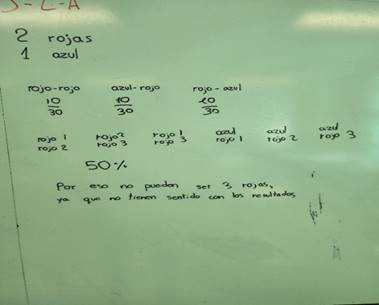 S-L-A
2 rojas
1 azul
rojo-rojo azul-rojo rojo-azul
10/30 10/30 10/30
rojo 1 rojo 2 rojo 1 azul azul azul
rojo 2 rojo 3 rojo 3 rojo 1 rojo 2 rojo 3
50%
Por eso no pueden ser 3 rojas,
ya que no tienen sentido con los resultados